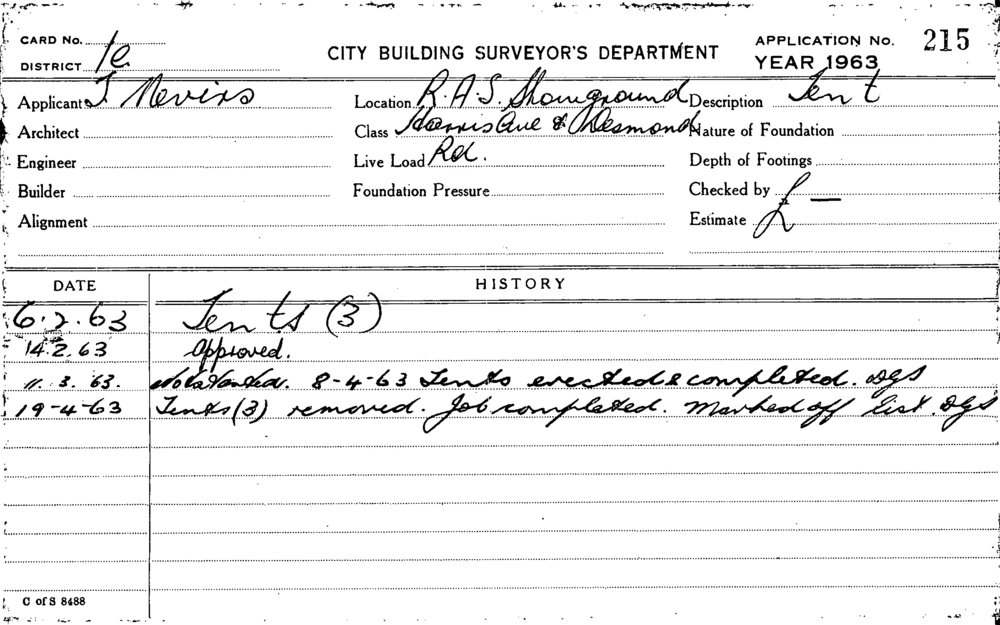 CARD No.
DISTRICT 1e
CITY BUILDING SURVEYOR'S DEPARTMENT
APPLICATION No. 215
YEAR 1963
Applicant J Nevins
Location R.A.S. Showground
Description Tent
Architect
Class Harris Ave & Desmond
Nature of Foundation
Engineer
Live Load Rd.
Depth of Footings
Builder
Foundation Pressure
Checked by
Alignment
Estimate £ —
DATE HISTORY
6.2.63 Tents (3)
14.2.63 Approved.
11.3.63. Not started. 8-4-63 Tents erected & completed. DGS
19-4-63 Tents (3) removed. Job completed. Marked off list. DGS
C of S 8488